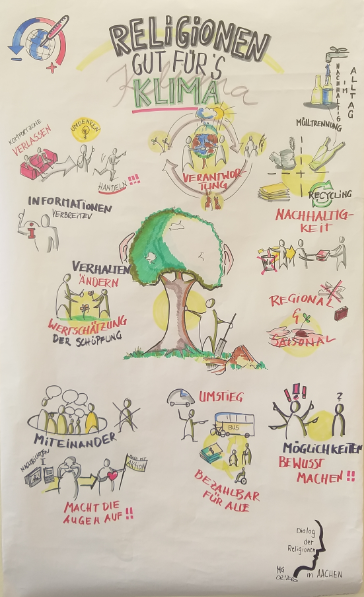 RELIGIONEN
GUT FÜR'S
KLIMA
NACHHALTIG
IM
ALLTAG
MÜLLTRENNUNG
KOMFORTZONE
VERLASSEN
UMDENKEN
HANDELN !!!
VERANTWOR-
TUNG
RECYCLING
NACHHALTIG-
KEIT
INFORMATIONEN
VERBREITEN
VERHALTEN
ÄNDERN
WERTSCHÄTZUNG
DER SCHÖPFUNG
REGIONAL
&
SAISONAL
MITEINANDER
MACHT DIE
AUGEN AUF!!
UMSTIEG
BUS
BEZAHLBAR
FÜR ALLE
!!!
?
MÖGLICHKEITEN
BEWUSST
MACHEN!!
Dialog
der
Religionen
in AACHEN